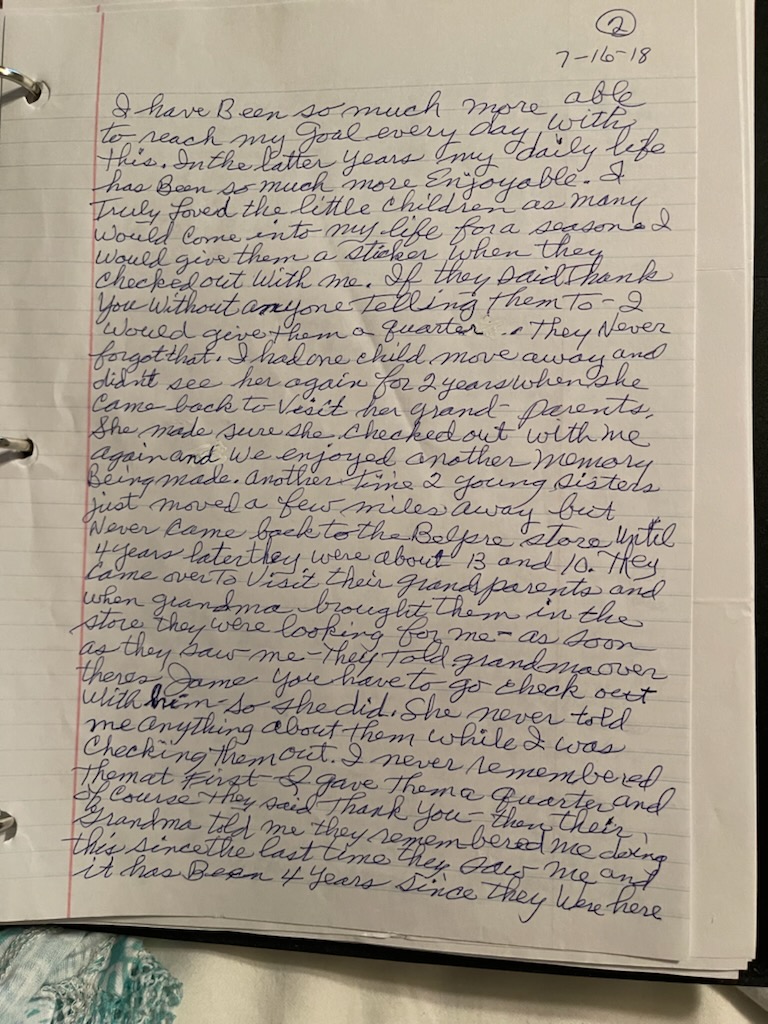 2
7-16-18
I have Been so much more able
to reach my Goal every day with
this. In the latter years my daily life
has Been so much more Enjoyable. I
Truly Loved the little children as many
would come into my life for a season. I
would give them a sticker when they
checked out With me. If they said Thank
You Without anyone Telling them To - I
would give them a quarter.. They Never
forgot that. I had one child move away and
didn't see her again for 2 years when she
came back to Visit her grand-parents.
She made sure she checked out with me
again and we enjoyed another memory
Being made. another Time 2 young sisters
just moved a few miles away but
Never came back to the Belpre store until
4 years later they were about 13 and 10. They
came over To Visit their grandparents and
when grandma brought them in the
store they were looking for me - as soon
as they saw me - They Told grandma over
theres Jame you have to go check out
with him - so she did. She never told
me anything about them while I was
Checking them out. I never remembered
Them at First - I gave Them a quarter and
of course They said Thank You - then their
Grandma told me they remembered me doing
this since the last time they saw me and
it has Been 4 years since they were here